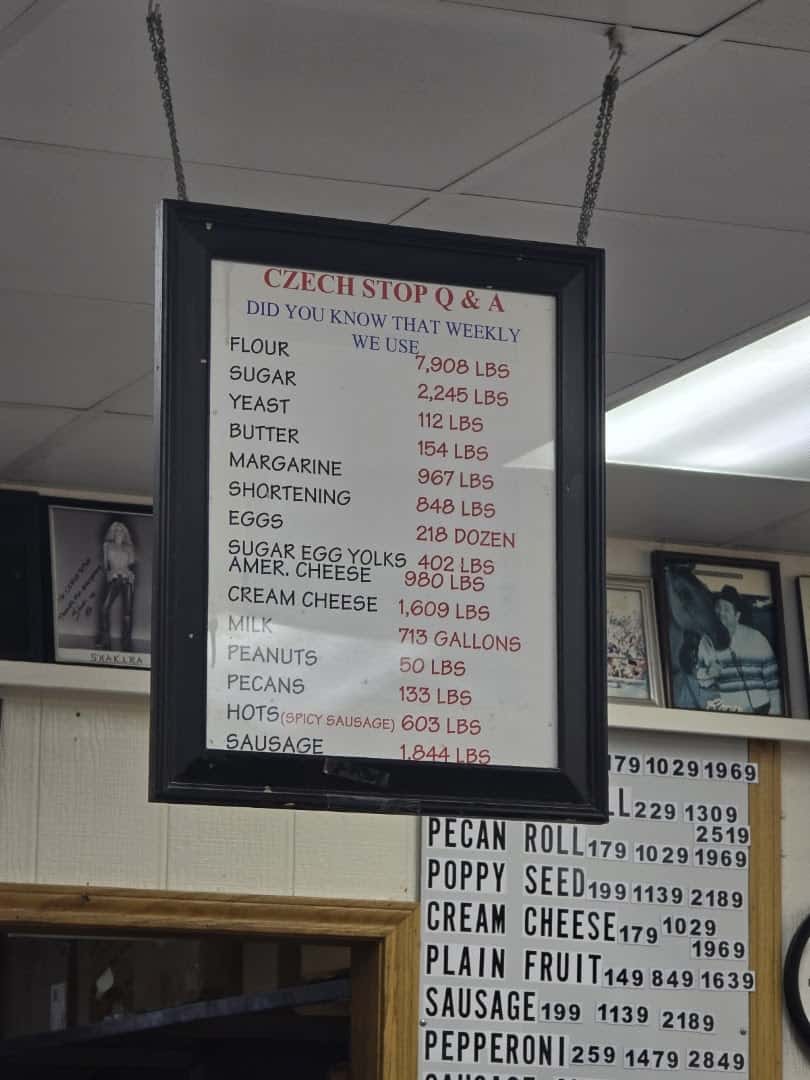 CZECH STOP Q & A
DID YOU KNOW THAT WEEKLY
WE USE
FLOUR 7,908 LBS
SUGAR 2,245 LBS
YEAST 112 LBS
BUTTER 154 LBS
MARGARINE 967 LBS
SHORTENING 848 LBS
EGGS 218 DOZEN
SUGAR EGG YOLKS 402 LBS
AMER. CHEESE 980 LBS
CREAM CHEESE 1,609 LBS
MILK 713 GALLONS
PEANUTS 50 LBS
PECANS 133 LBS
HOTS(SPICY SAUSAGE) 603 LBS
SAUSAGE 1,844 LBS
SHAKIRA
179 1029 1969
L 229 1309
2519
PECAN ROLL 179 1029 1969
POPPY SEED 199 1139 2189
CREAM CHEESE 179 1029
1969
PLAIN FRUIT 149 849 1639
SAUSAGE 199 1139 2189
PEPPERONI 259 1479 2849